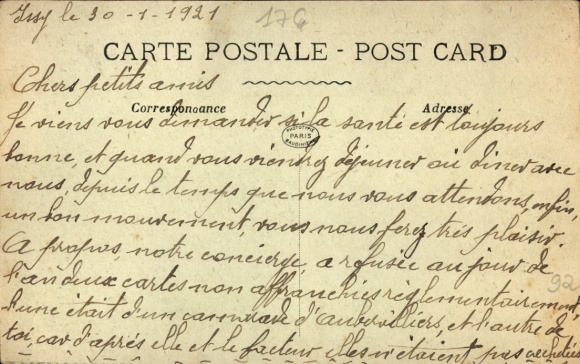 Issy le 30-1-1921
176
CARTE POSTALE - POST CARD
Chers petits amis
Correspondance
Adresse
Je viens vous demander si la santé est toujours
PHOTOTYPIE
PARIS
BAUDINIERE
bonne, et quand vous viendrez déjeuner où diner avec
nous, depuis le temps que nous vous attendons, enfin,
un bon mouvement, vous nous ferez très plaisir.
A propos, notre concierge, a refusée au jour de
92
l'an deux cartes non affranchies règlementairement,
l'une était d'un camarade d'Aubervilliers, et l'autre de
toi, car d'après elle et le facteur, elles n'étaient, pas